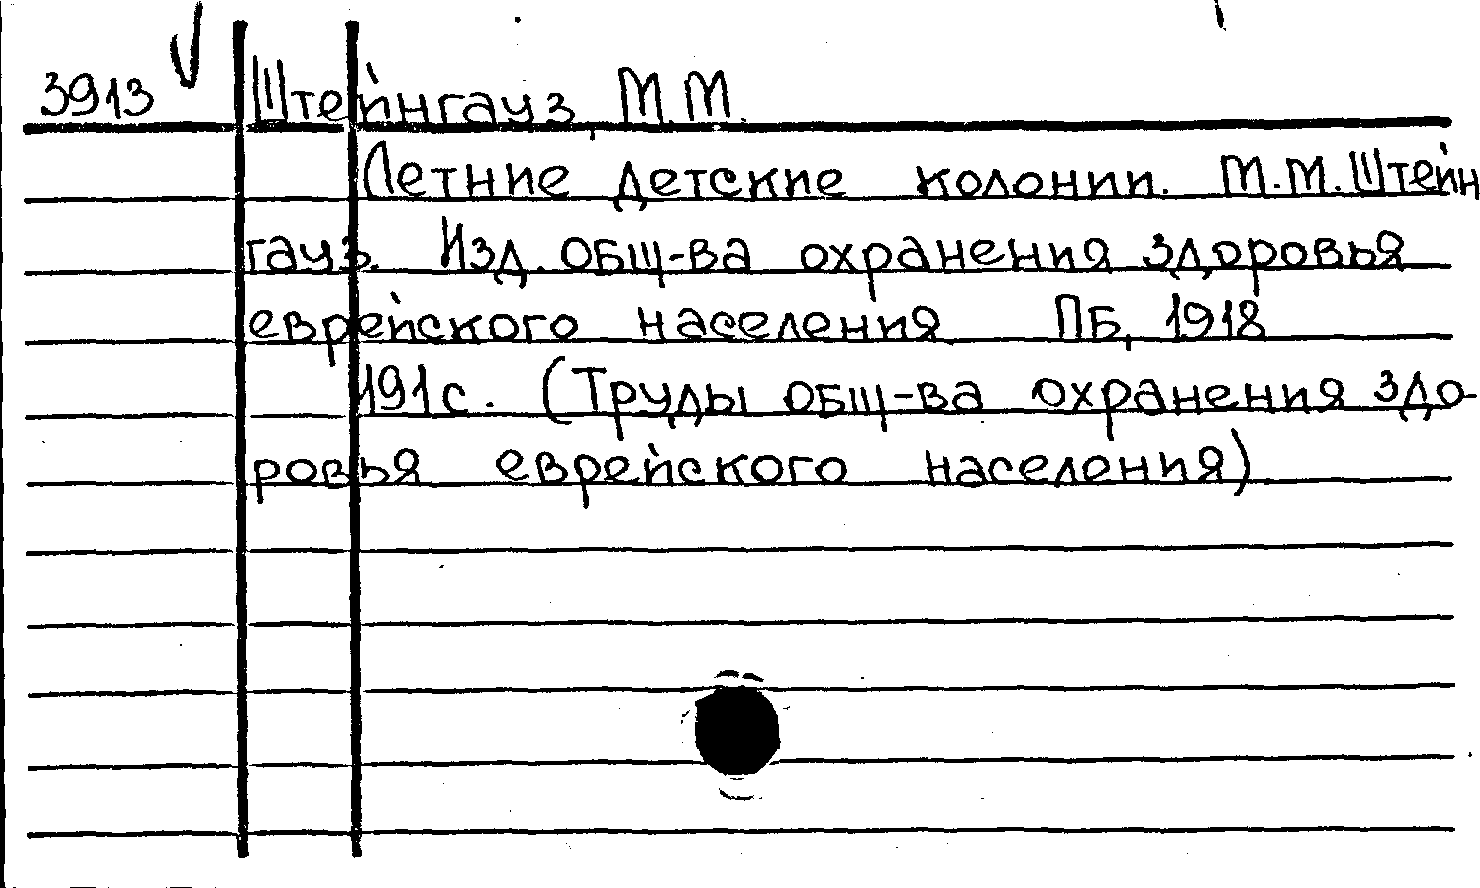 3913 Штейнгауз, М.М.
Летние детские колонии. М.М.Штейн
гауз. Изд. общ-ва охранения здоровья
еврейского населения ПБ, 1918
191с. (Труды общ-ва охранения здо-
ровья еврейского населения)